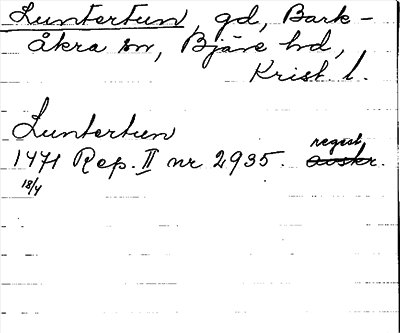 Luntertun, gd, Bark-
åkra sn, Bjäre hd,
Krist l.
Luntertun
regest
1471 Rep. II nr 2935. avskr.
18/4